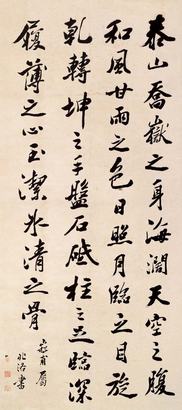 泰山喬嶽之身海濶天空之腹
和風甘雨之色日照月臨之目旋
乾轉坤之手盤石砥柱之足臨深
履薄之心玉潔冰清之骨
甫屬
兆洛書